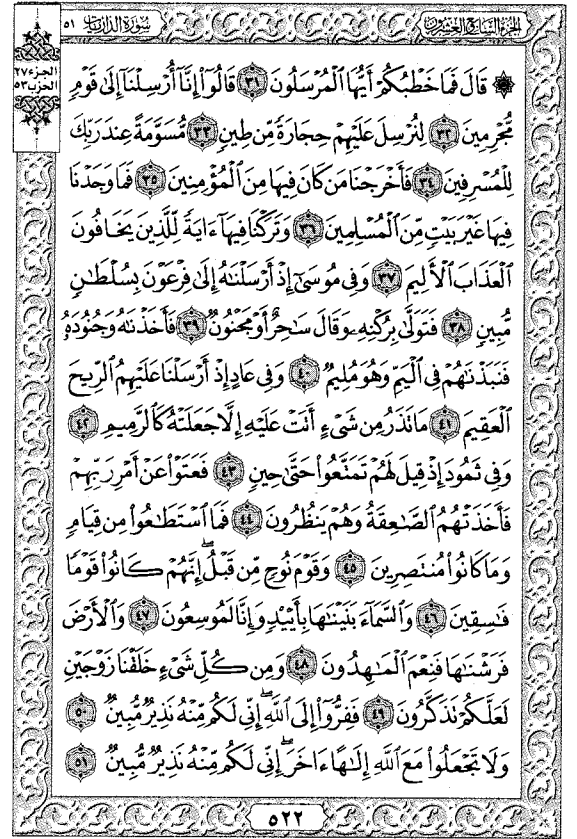 سورة الذاريات ٥١
الجزء السابع والعشرون
الجزء ٢٧
الحزب ٥٣
۞ قَالَ فَمَا خَطْبُكُمْ أَيُّهَا ٱلْمُرْسَلُونَ ٣١ قَالُوٓا۟ إِنَّآ أُرْسِلْنَآ إِلَىٰ قَوْمٍ
مُّجْرِمِينَ ٣٢ لِنُرْسِلَ عَلَيْهِمْ حِجَارَةً مِّن طِينٍ ٣٣ مُّسَوَّمَةً عِندَ رَبِّكَ
لِلْمُسْرِفِينَ ٣٤ فَأَخْرَجْنَا مَن كَانَ فِيهَا مِنَ ٱلْمُؤْمِنِينَ ٣٥ فَمَا وَجَدْنَا
فِيهَا غَيْرَ بَيْتٍ مِّنَ ٱلْمُسْلِمِينَ ٣٦ وَتَرَكْنَا فِيهَآ ءَايَةً لِّلَّذِينَ يَخَافُونَ
ٱلْعَذَابَ ٱلْأَلِيمَ ٣٧ وَفِى مُوسَىٰٓ إِذْ أَرْسَلْنَٰهُ إِلَىٰ فِرْعَوْنَ بِسُلْطَٰنٍ
مُّبِينٍ ٣٨ فَتَوَلَّىٰ بِرُكْنِهِۦ وَقَالَ سَٰحِرٌ أَوْ مَجْنُونٌ ٣٩ فَأَخَذْنَٰهُ وَجُنُودَهُۥ
فَنَبَذْنَٰهُمْ فِى ٱلْيَمِّ وَهُوَ مُلِيمٌ ٤٠ وَفِى عَادٍ إِذْ أَرْسَلْنَا عَلَيْهِمُ ٱلرِّيحَ
ٱلْعَقِيمَ ٤١ مَا تَذَرُ مِن شَىْءٍ أَتَتْ عَلَيْهِ إِلَّا جَعَلَتْهُ كَٱلرَّمِيمِ ٤٢
وَفِى ثَمُودَ إِذْ قِيلَ لَهُمْ تَمَتَّعُوا۟ حَتَّىٰ حِينٍ ٤٣ فَعَتَوْا۟ عَنْ أَمْرِ رَبِّهِمْ
فَأَخَذَتْهُمُ ٱلصَّٰعِقَةُ وَهُمْ يَنظُرُونَ ٤٤ فَمَا ٱسْتَطَٰعُوا۟ مِن قِيَامٍ
وَمَا كَانُوا۟ مُنتَصِرِينَ ٤٥ وَقَوْمَ نُوحٍ مِّن قَبْلُ ۖ إِنَّهُمْ كَانُوا۟ قَوْمًا
فَٰسِقِينَ ٤٦ وَٱلسَّمَآءَ بَنَيْنَٰهَا بِأَيْي۟دٍ وَإِنَّا لَمُوسِعُونَ ٤٧ وَٱلْأَرْضَ
فَرَشْنَٰهَا فَنِعْمَ ٱلْمَٰهِدُونَ ٤٨ وَمِن كُلِّ شَىْءٍ خَلَقْنَا زَوْجَيْنِ
لَعَلَّكُمْ تَذَكَّرُونَ ٤٩ فَفِرُّوٓا۟ إِلَى ٱللَّهِ ۖ إِنِّى لَكُم مِّنْهُ نَذِيرٌ مُّبِينٌ ٥٠
وَلَا تَجْعَلُوا۟ مَعَ ٱللَّهِ إِلَٰهًا ءَاخَرَ ۖ إِنِّى لَكُم مِّنْهُ نَذِيرٌ مُّبِينٌ ٥١
٥٢٢